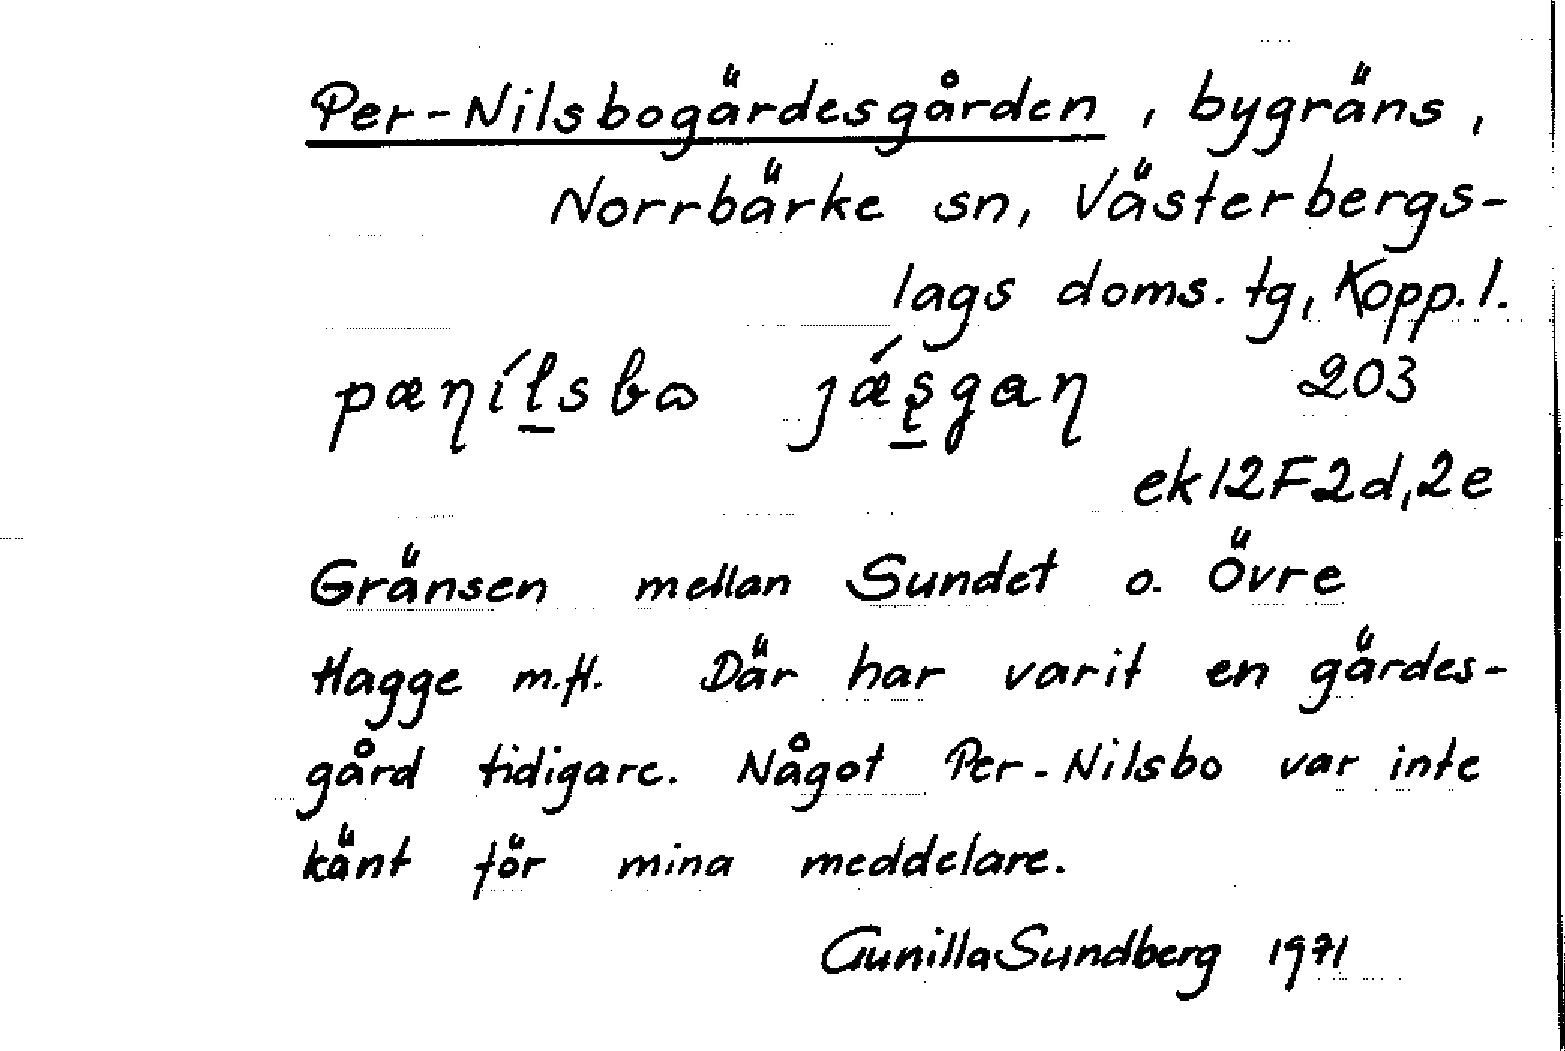 Per-Nilsbogärdesgården, bygräns,
Norrbärke sn, Västerbergs-
lags doms. tg, Kopp. l.
203
ek 12F2d,2e
Gränsen mellan Sundet o. Övre
Hagge m.fl. Där har varit en gärdes-
gård tidigare. Något Per-Nilsbo var inte
känt för mina meddelare.
Gunilla Sundberg 1971